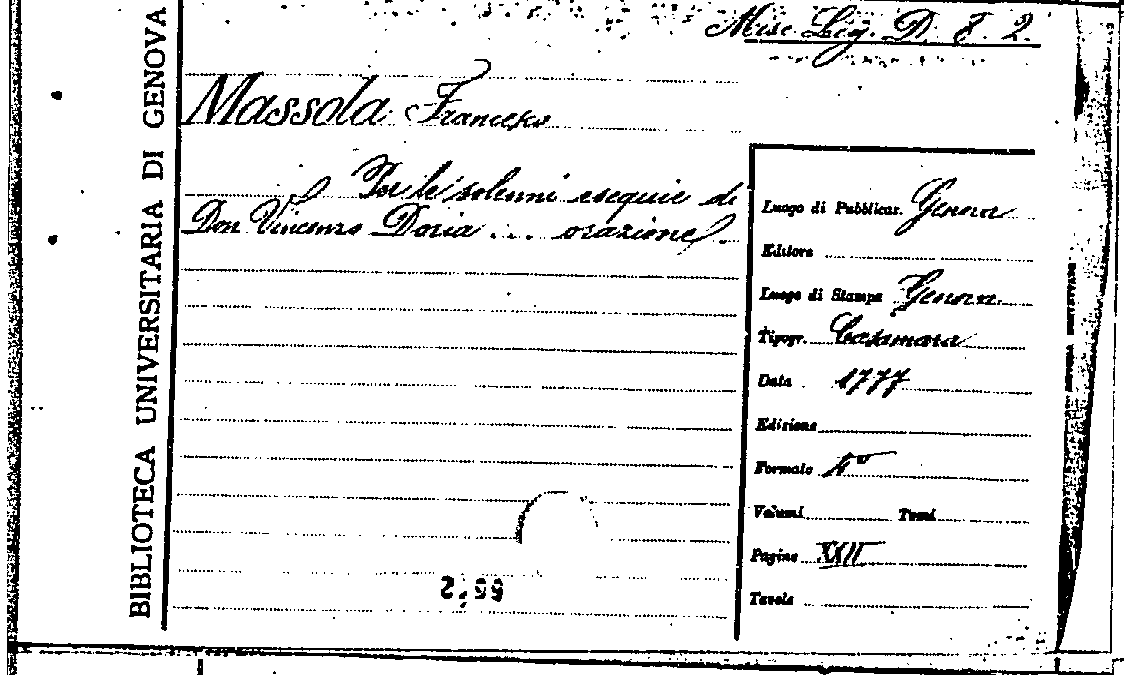 Misc. Lig. D. 8. 2.
BIBLIOTECA UNIVERSITARIA DI GENOVA
Massola Francesco
Per le solenni esequie di
Don Vincenzo Doria ... orazione.
Luogo di Pubblicaz. Genova
Editore
Luogo di Stampa Genova
Tipogr. Casamara
Data 1777
Edizione
Formato 4º
Volumi Tomi
Pagine XXII
Tavole